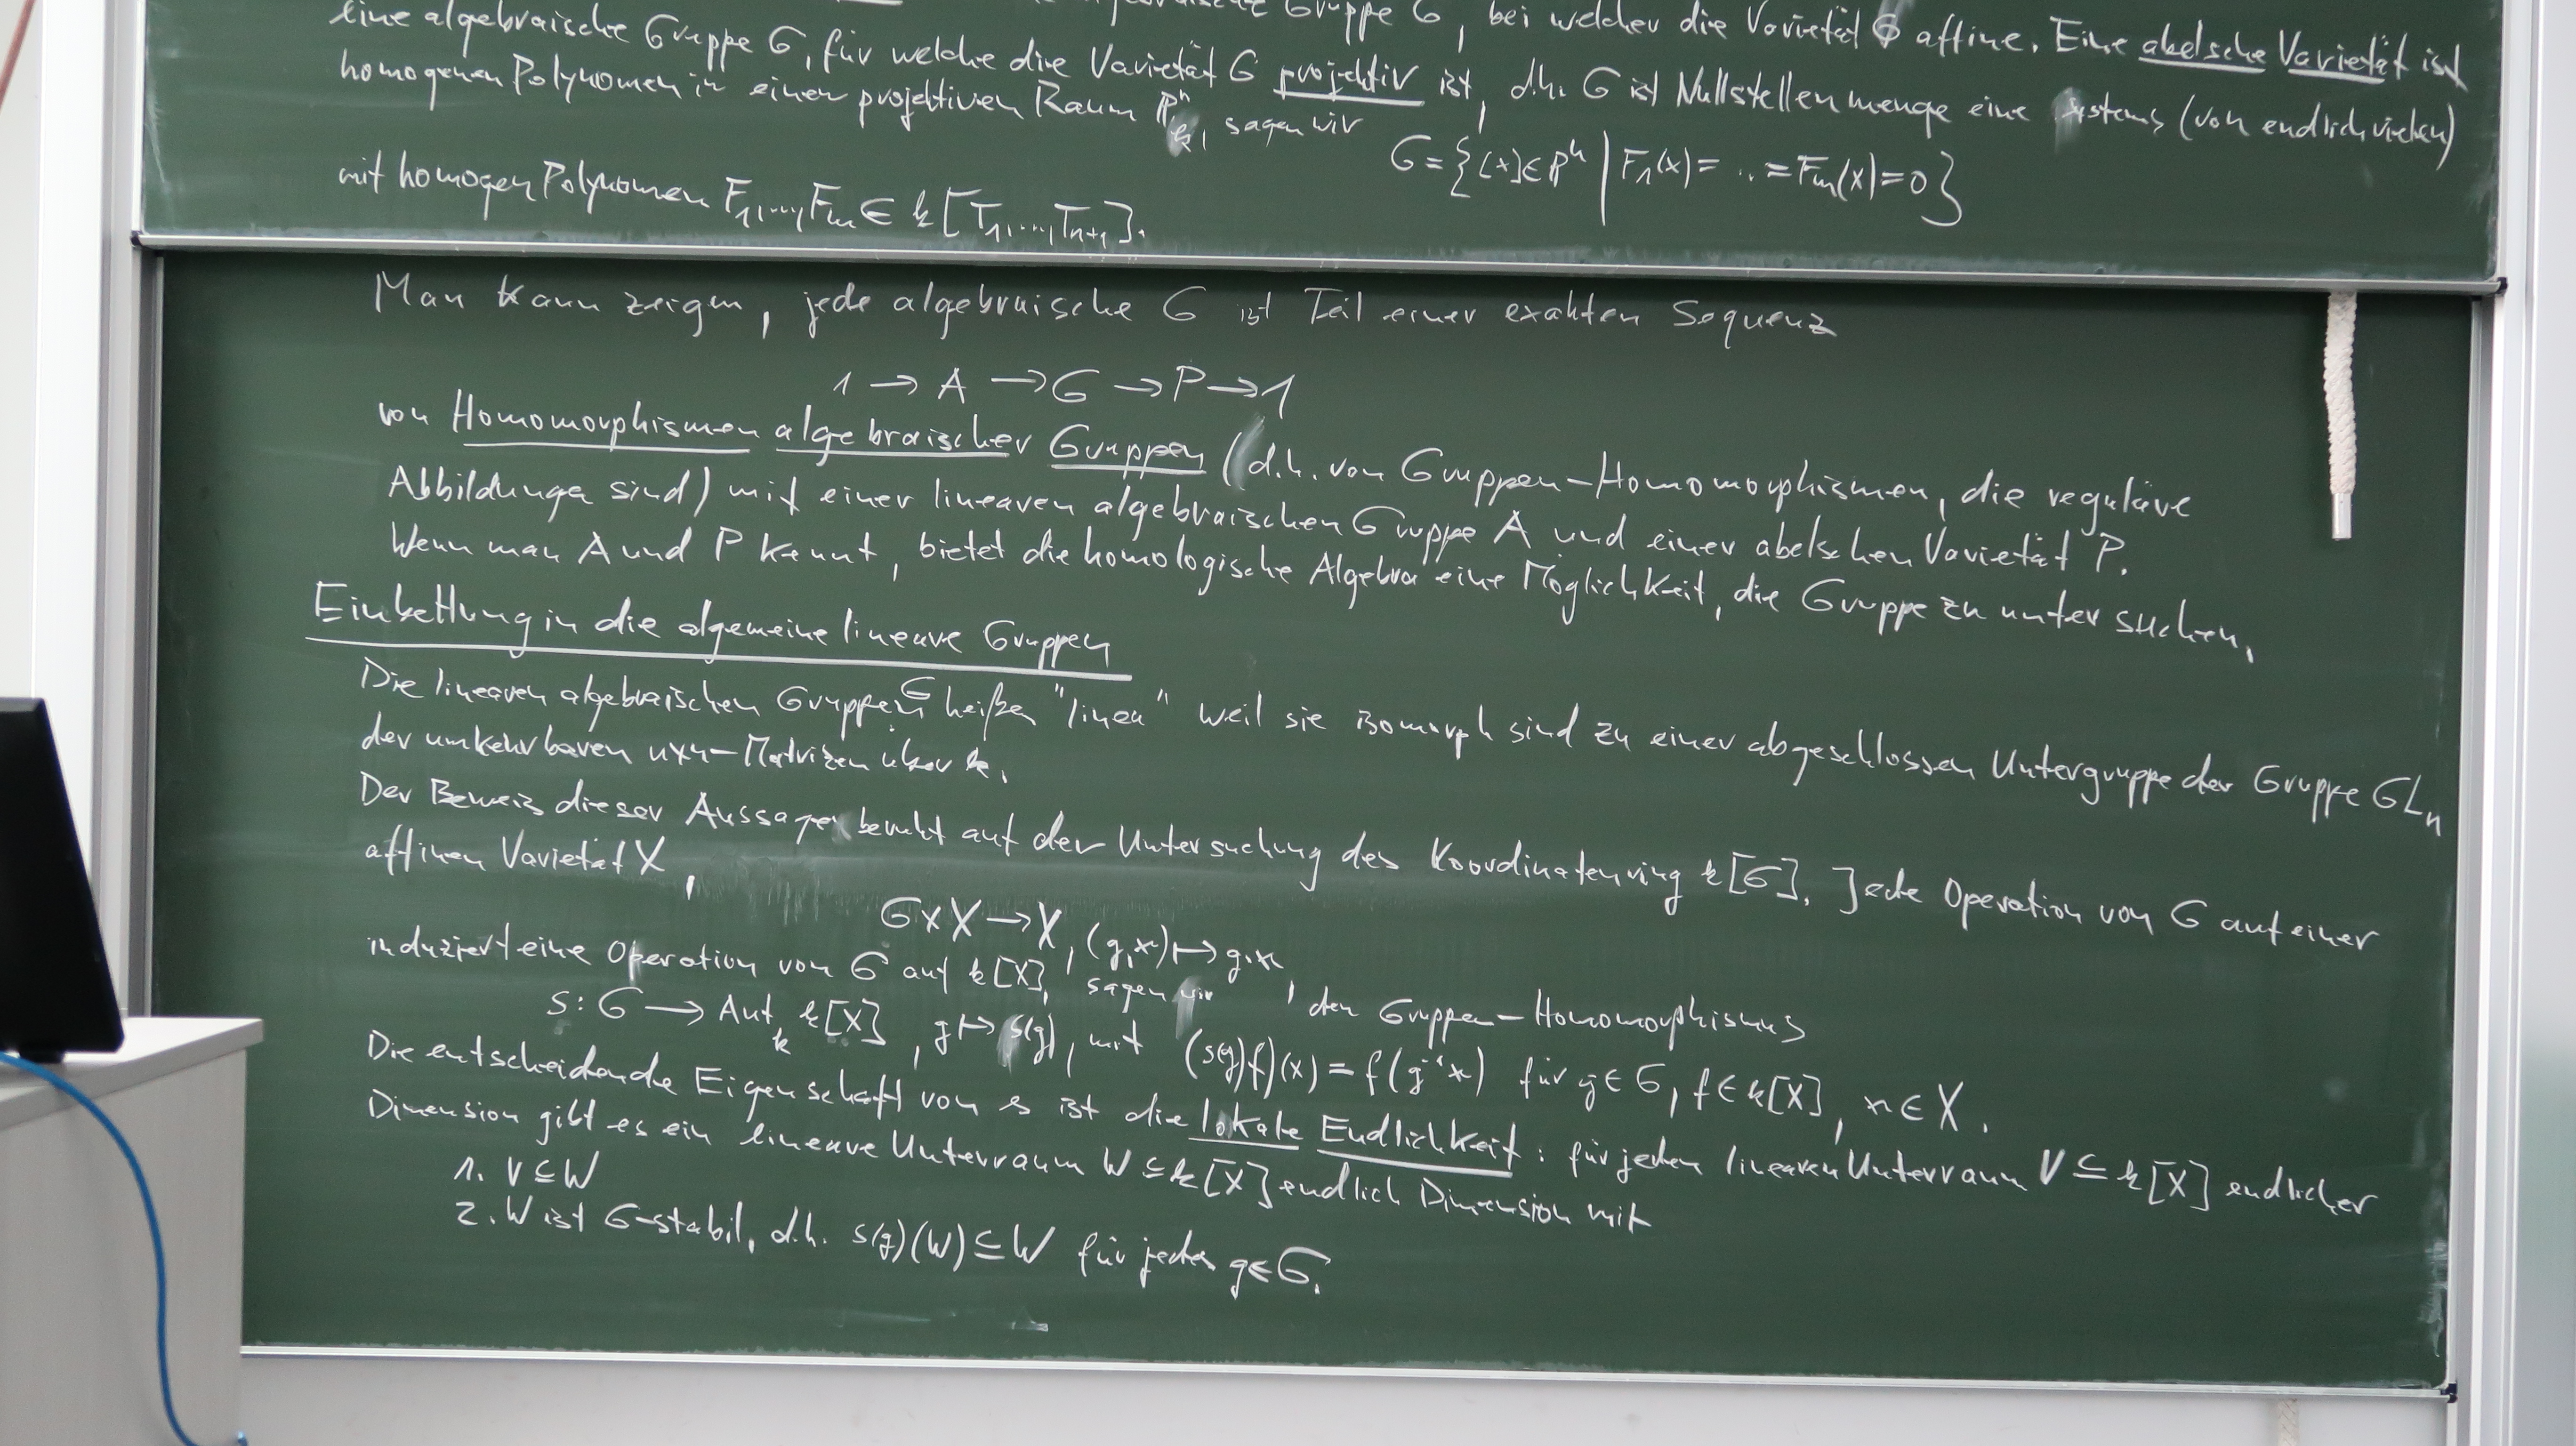 Gruppe G, bei welcher die Varietät G affine. Eine abelsche Varietät ist
eine algebraische Gruppe G, für welche die Varietät G projektiv ist, d.h. G ist Nullstellenmenge eine Systems (von endlich vielen)
homogenen Polynomen in einen projektiven Raum P^n_k, sagen wir
G = {[x]∈P^n | F_1(x) = .. = F_m(x) = 0}
mit homogen Polynomen F_1,...,F_m ∈ k[T_1,...,T_{n+1}].
Man kann zeigen, jede algebraische G ist Teil einer exakten Sequenz
1 → A → G → P → 1
von Homomorphismen algebraischer Gruppen (d.h. von Gruppen-Homomorphismen, die reguläre
Abbildunge sind) mit einer linearen algebraischen Gruppe A und einer abelschen Varietät P.
Wenn man A und P kennt, bietet die homologische Algebra eine Möglichkeit, die Gruppe zu untersuchen.
Einbettung in die algemeine lineare Gruppen
Die linearen algebraischen Gruppen G heißen "linea" weil sie isomorph sind zu einer abgeschlossen Untergruppe der Gruppe GL_n
der umkehrbaren n×n-Matrizen über k.
Der Beweis dieser Aussage beruht auf der Untersuchung des Koordinatenring k[G]. Jede Operation von G auf einer
affinen Varietät X,
G×X → X, (g,x) ↦ g·x,
induziert eine Operation von G auf k[X], sagen wir, den Gruppen-Homomorphismus
s: G → Aut_k k[X], g ↦ s(g), mit (s(g)f)(x) = f(g^{-1}x) für g∈G, f∈k[X], x∈X.
Die entscheidende Eigenschaft von s ist die lokale Endlichkeit: für jeden linearen Unterraum V ⊆ k[X] endlicher
Dimension gibt es ein lineare Unterraum W ⊆ k[X] endlich Dimension mit
1. V ⊆ W
2. W ist G-stabil, d.h. s(g)(W) ⊆ W für jedes g∈G.